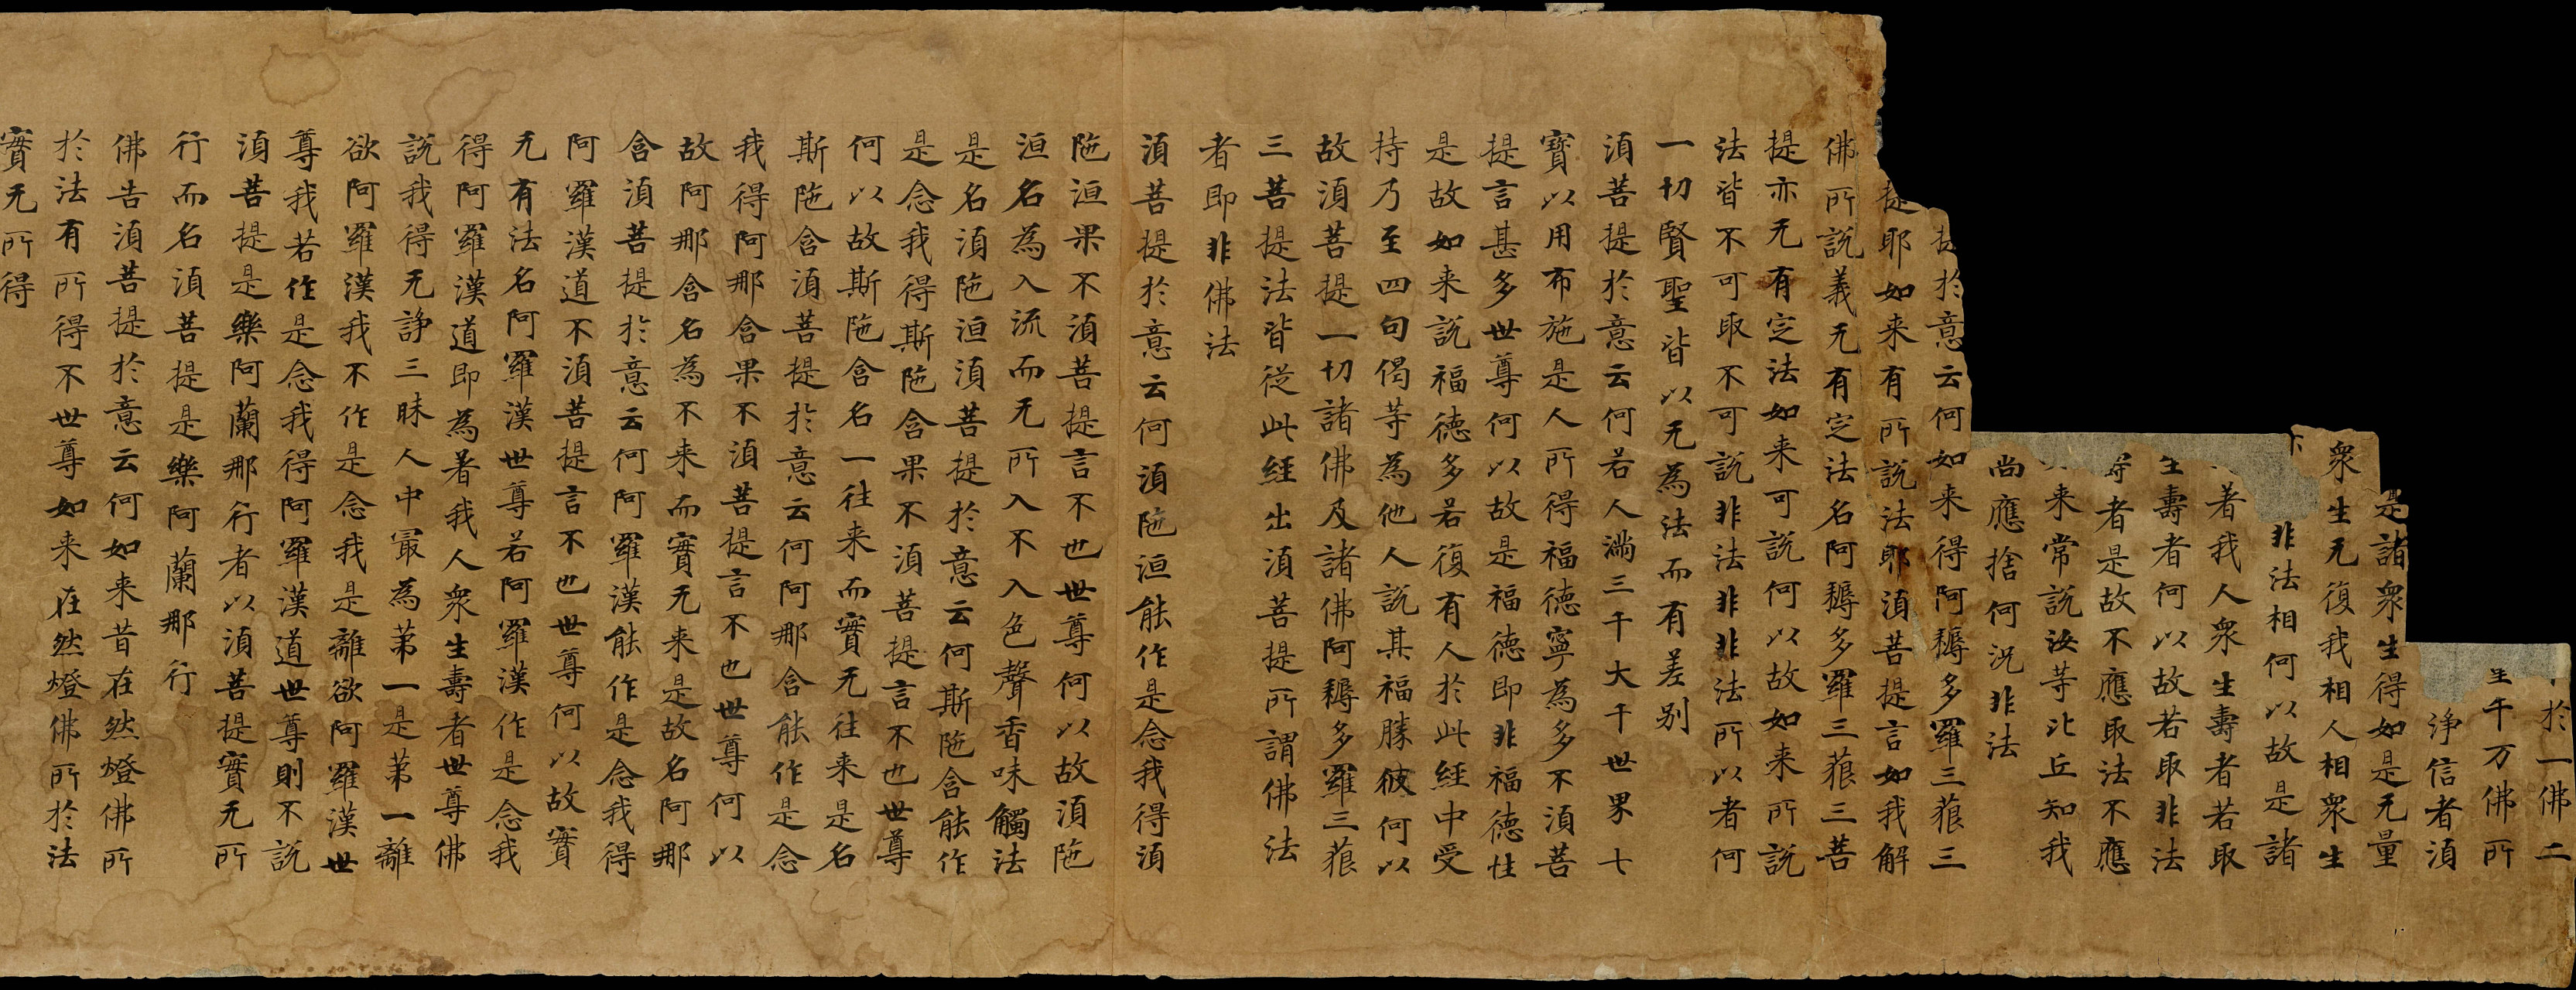 於一佛二
千万佛所
淨信者湏
是諸衆生得如是无量
衆生无復我相人相衆生
非法相何以故是諸
著我人衆生壽者若取
壽者何以故若取非法
者是故不應取法不應
来常說汝等比丘知我
尚應捨何況非法
提於意云何如来得阿耨多羅三藐三
提耶如来有所說法耶湏菩提言如我解
佛所說義无有定法名阿耨多羅三藐三菩
提亦无有定法如来可說何以故如来所說
法皆不可取不可說非法非非法所以者何
一切賢聖皆以无為法而有差别
湏菩提於意云何若人滿三千大千世界七
寳以用布施是人所得福德寧為多不湏菩
提言甚多世尊何以故是福德即非福德性
是故如来說福德多若復有人於此経中受
持乃至四句偈等為他人說其福勝彼何以
故湏菩提一切諸佛及諸佛阿耨多羅三藐
三菩提法皆從此経出湏菩提所謂佛法
者即非佛法
湏菩提於意云何湏陁洹能作是念我得湏
陁洹果不湏菩提言不也世尊何以故湏陁
洹名為入流而无所入不入色聲香味觸法
是名湏陁洹湏菩提於意云何斯陁含能作
是念我得斯陁含果不湏菩提言不也世尊
何以故斯陁含名一往来而實无往来是名
斯陁含湏菩提於意云何阿那含能作是念
我得阿那含果不湏菩提言不也世尊何以
故阿那含名為不来而實无来是故名阿那
含湏菩提於意云何阿羅漢能作是念我得
阿羅漢道不湏菩提言不也世尊何以故實
无有法名阿羅漢世尊若阿羅漢作是念我
得阿羅漢道即為著我人衆生壽者世尊佛
說我得无諍三昧人中㝡為苐一是苐一離
欲阿羅漢我不作是念我是離欲阿羅漢世
尊我若作是念我得阿羅漢道世尊則不說
湏菩提是樂阿蘭那行者以湏菩提實无所
行而名湏菩提是樂阿蘭那行
佛告湏菩提於意云何如来昔在然燈佛所
於法有所得不世尊如来在然燈佛所於法
實无所得